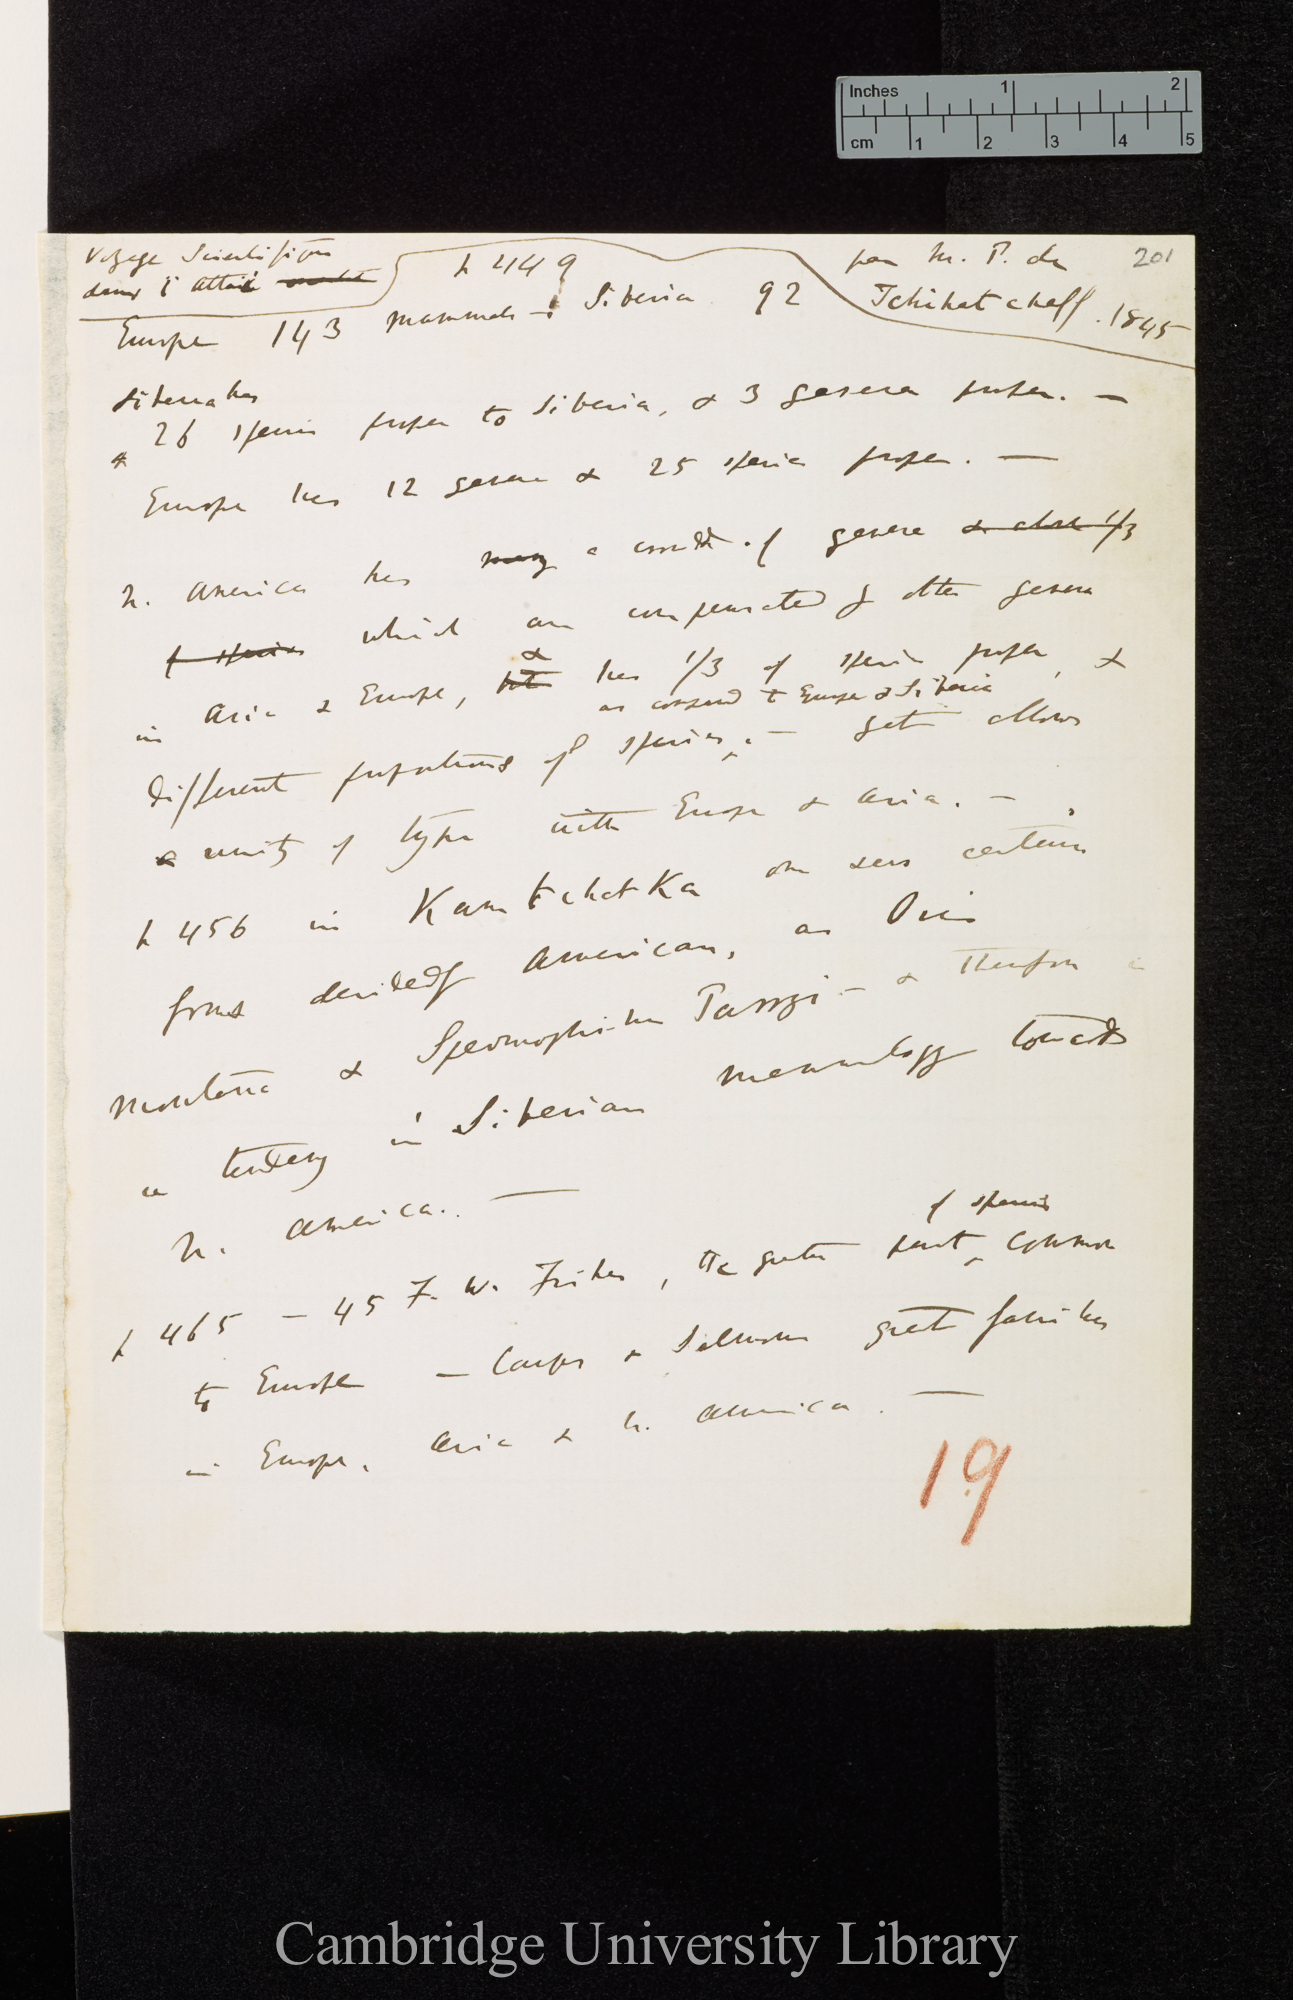 Inches 1 2
cm 1 2 3 4 5
201
Voyage Scientifique
dans l'Altai
par M. P. de
Tchihatcheff. 1845
p 449
Europe 143 mammals — Siberia 92
Siberia has
& 26 species proper to Siberia, & 3 genera proper. —
Europe has 12 genera & 25 species proper. —
N. America has many a of genera & about 1/3
of species which are compensated by other genera
in Asia & Europe, but & has 1/3 of species proper, &
different proportions of species, as compared to Europe & Siberia. — yet allows
a unity of type with Europe & Asia. —
p 456 in Kamtchatka one sees certain
forms decidedly American, as Ovis
montana & Spermophilus Parryi — & therefore
a tendency in Siberian mammalogy towards
N. America. —
p 465 — 45 F. W. Fishes, the greater part of species common
to Europe — Carps & Salmons great families
in Europe, Asia & N. America. —
19
Cambridge University Library